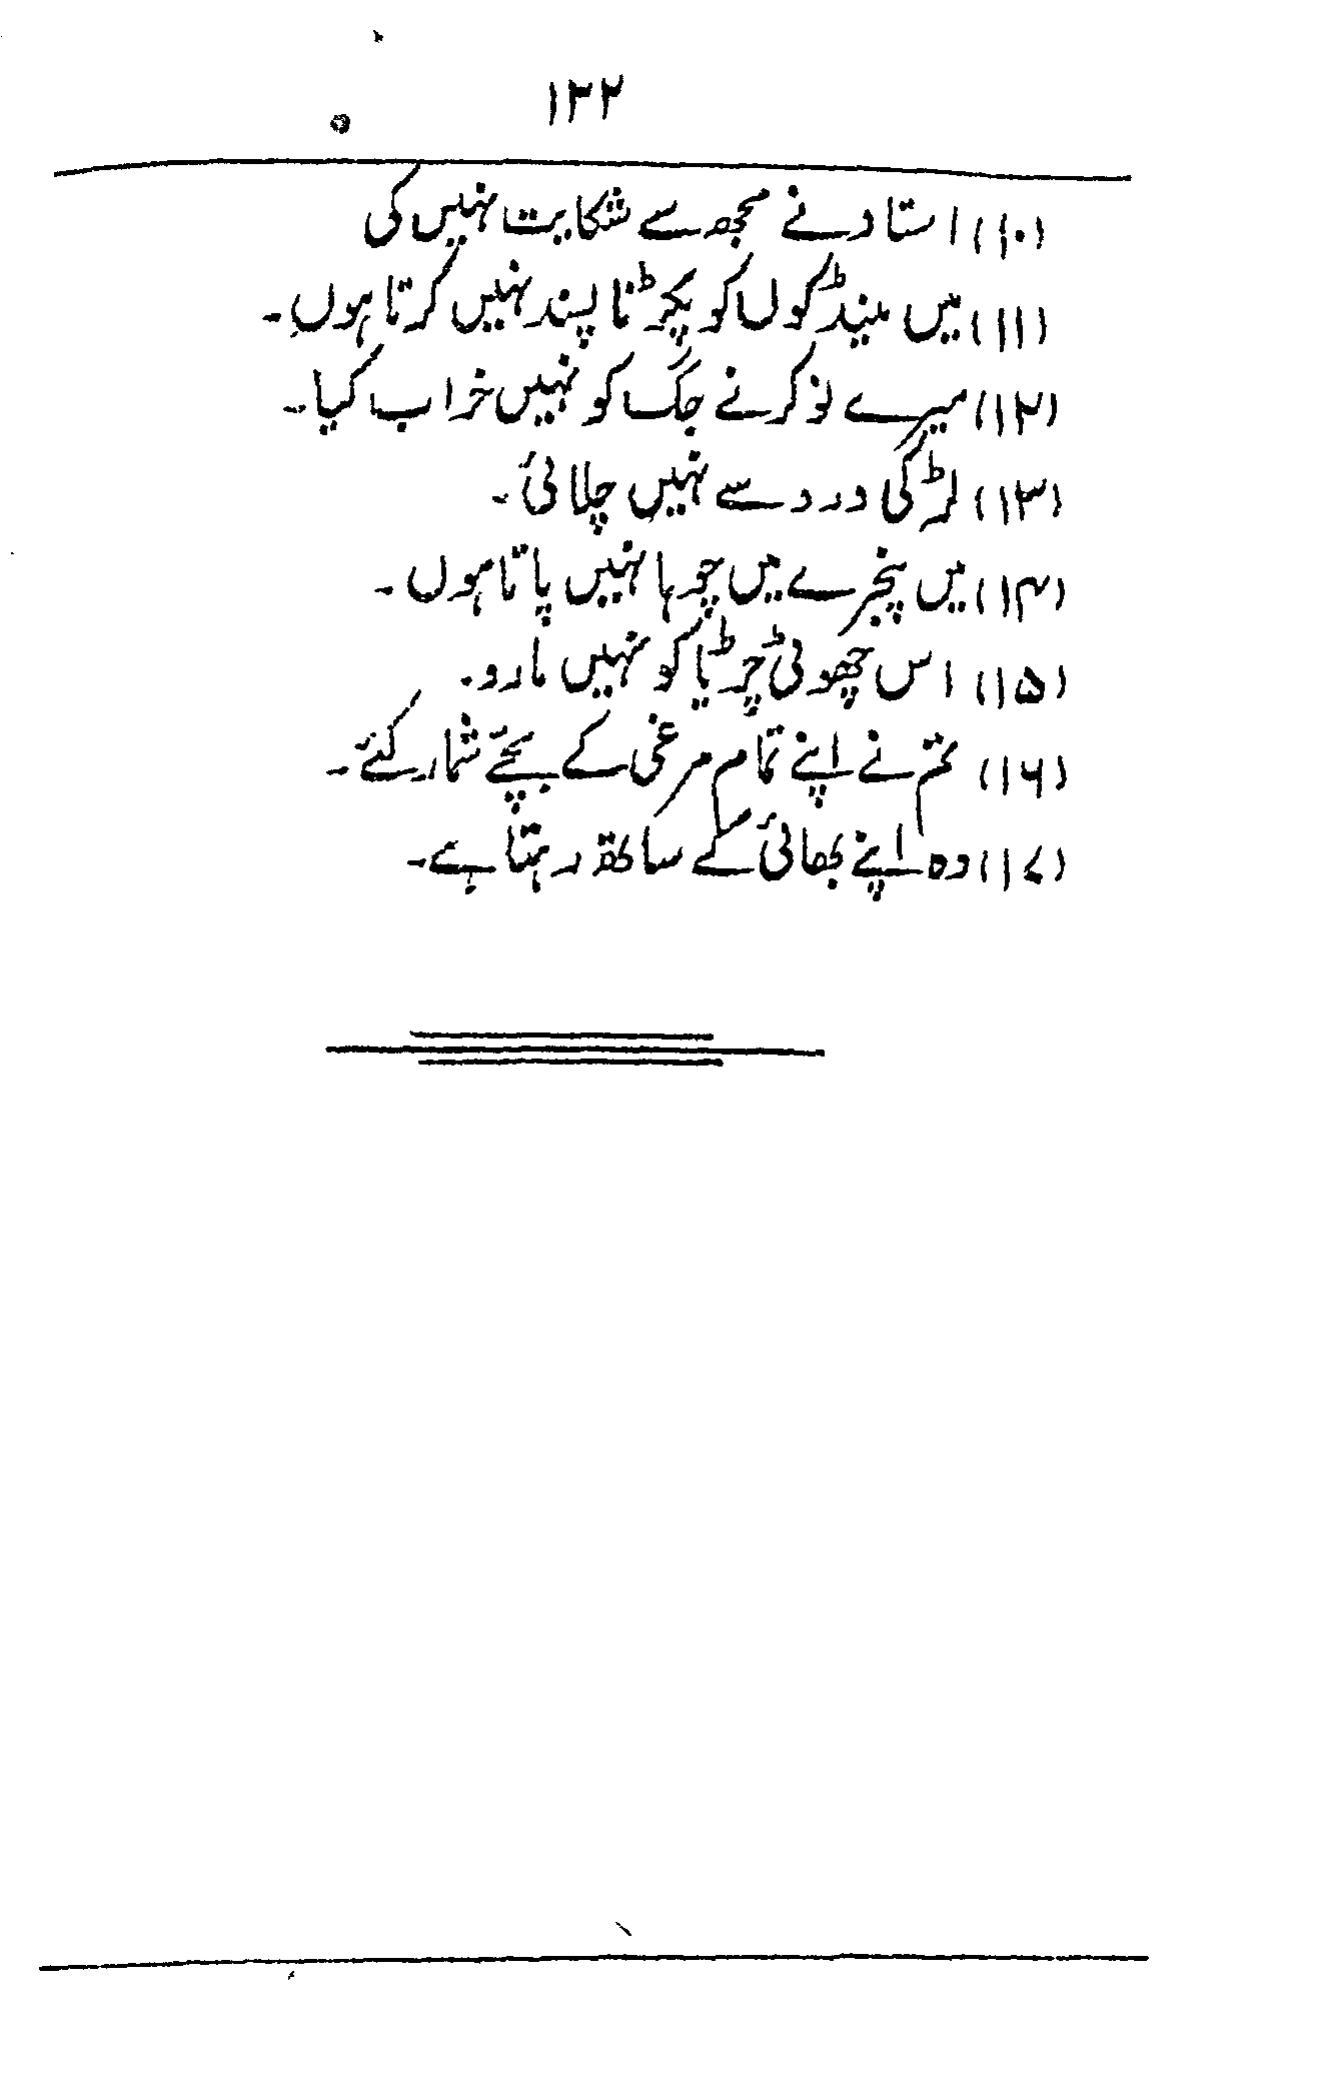 ۱۲۲
(۱۰) استاد نے مجھ سے شکایت نہیں کی
(۱۱) میں مینڈکوں کو پکڑنا پسند نہیں کرتا ہوں۔
(۱۲) میرے نوکر نے جگ کو نہیں خراب کیا۔
(۱۳) لڑکی درد سے نہیں چلائی۔
(۱۴) میں پنجرے میں چوہا نہیں پاتا ہوں۔
(۱۵) اس چھوٹی چڑیا کو نہیں مارو۔
(۱۶) تم نے اپنے تمام مرغی کے بچّے شمار کئے۔
(۱۷) وہ اپنے بھائی کے ساتھ رہتا ہے۔